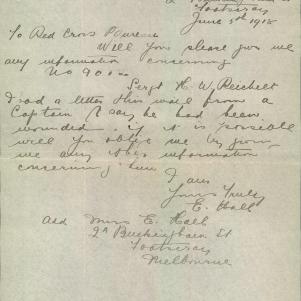 Footscray
June 5th 1918
To Red Cross Bureau
Will you please give me
any information concerning
No 900
Sergt H. W. Reichelt
I had a letter this mail from a
Captain to say he had been
wounded if it is possible
will you oblige me by giving
me any other information
concerning him
I am
Yours Truly
E. Hall
Add Miss E. Hall
2A Buckingham St
Footscray
Melbourne